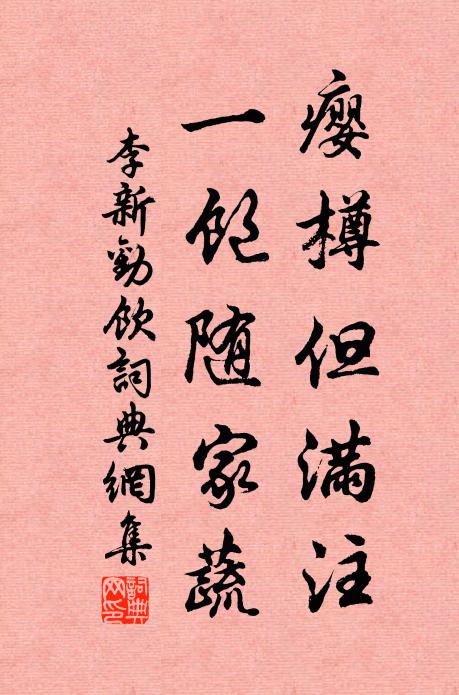 癭樽但滿注
一飽随家蔬
李新勸飲詞典網集
詞典網印